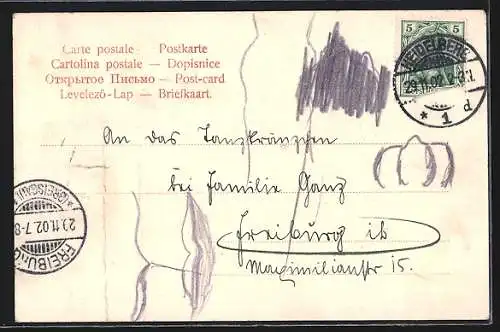 Carte postale — Postkarte
Cartolina postale — Dopisnice
Открытое Письмо — Post-card
Levelező-Lap — Briefkaart.
5 5
HEIDELBERG
29.11.02.
* 1 d
An das Tanzkränzchen
bei Familie Ganz
Freiburg i/b
Maximilianstr 15.
FREIBURG
29.11.02.7-8
(BREISGAU)